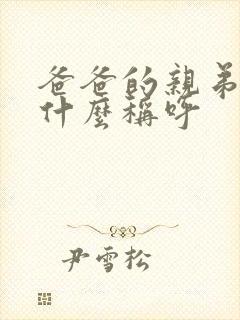 爸爸的親弟
什麼稱呼
尹雪松